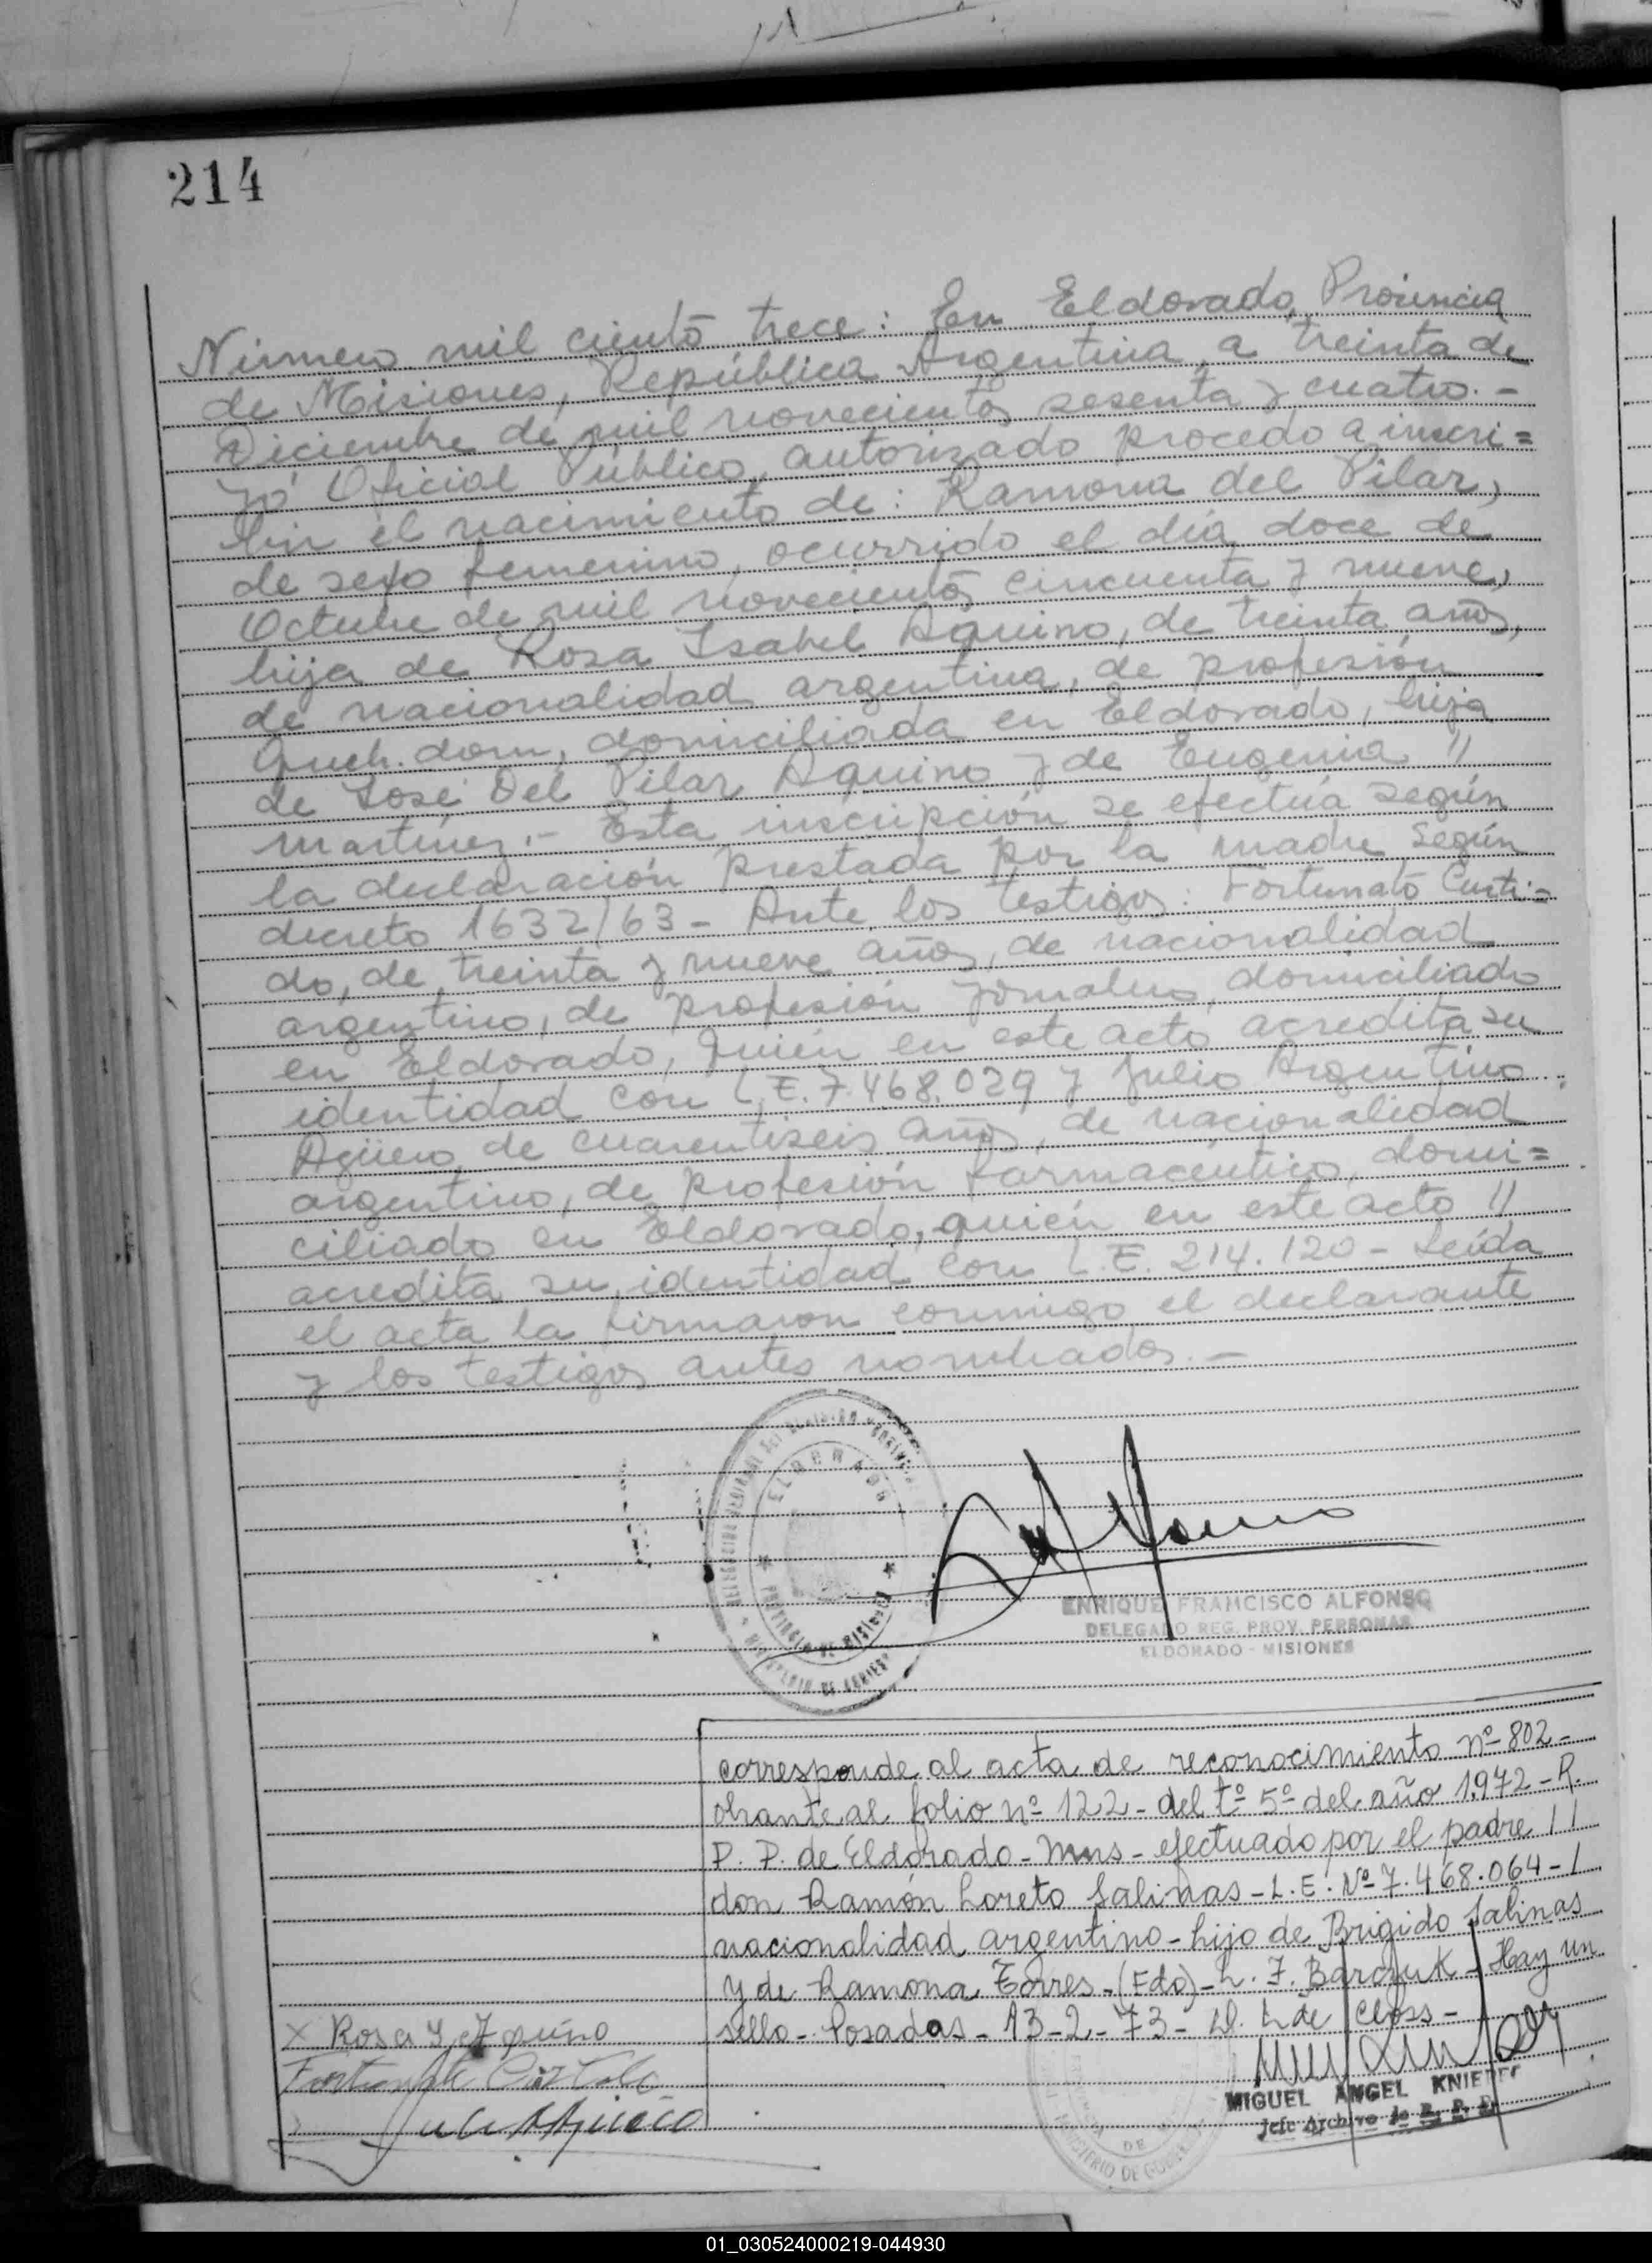 214
Número mil ciento trece: En Eldorado, Provincia
de Misiones, República Argentina, a treinta de
Diciembre de mil novecientos sesenta y cuatro.-
Yo Oficial Público, autorizado procedo a inscri=
bir el nacimiento de: Ramona del Pilar,
de sexo femenino, ocurrido el día doce de
Octubre de mil novecientos cincuenta y nueve,
hija de Rosa Isabel Aquino, de treinta años,
de nacionalidad argentina, de profesión
Queh. dom, domiciliada en Eldorado, hija
de José Del Pilar Aquino y de Eugenia //
Martínez.- Esta inscripción se efectúa según
la declaración prestada por la madre según
decreto 1632/63- Ante los testigos: Fortunato
do, de treinta y nueve años, de nacionalidad
argentino, de profesión jornalero, domiciliado
en Eldorado, quién en este acto acredita su
identidad con L.E. 7.468.029 y Julio Argentino
Agüero, de cuarentiseis años, de nacionalidad
argentino, de profesión farmacéutico, domi=
ciliado en Eldorado, quién en este acto //
acredita su identidad con L.E. 214.120- Leída
el acta la firmaron conmigo el declarante
y los testigos antes nombrados.-
ELDORADO
PROVINCIA DE MISIONES
ENRIQUE FRANCISCO ALFONSO
DELEGADO REG. PROV. PERSONAS
ELDORADO - MISIONES
corresponde al acta de reconocimiento nº 802-
obrante al folio nº 122- del tº 5º del año 1972- R.
P. P. de Eldorado- Mnes- efectuado por el padre //
don Ramón Loreto Salinas- L.E. Nº 7.468.064- /
nacionalidad argentino- hijo de Brigido Salinas
y de Ramona Torres- (Fdo)- L. F. Barczuk- Hay un
sello- Posadas- 13-2-73- de Closs-
X Rosa Y Aquino
MIGUEL ANGEL KNIEPER
Jefe Archivo de R. P. P.
MINISTERIO DE GOBIERNO
01_030524000219-044930